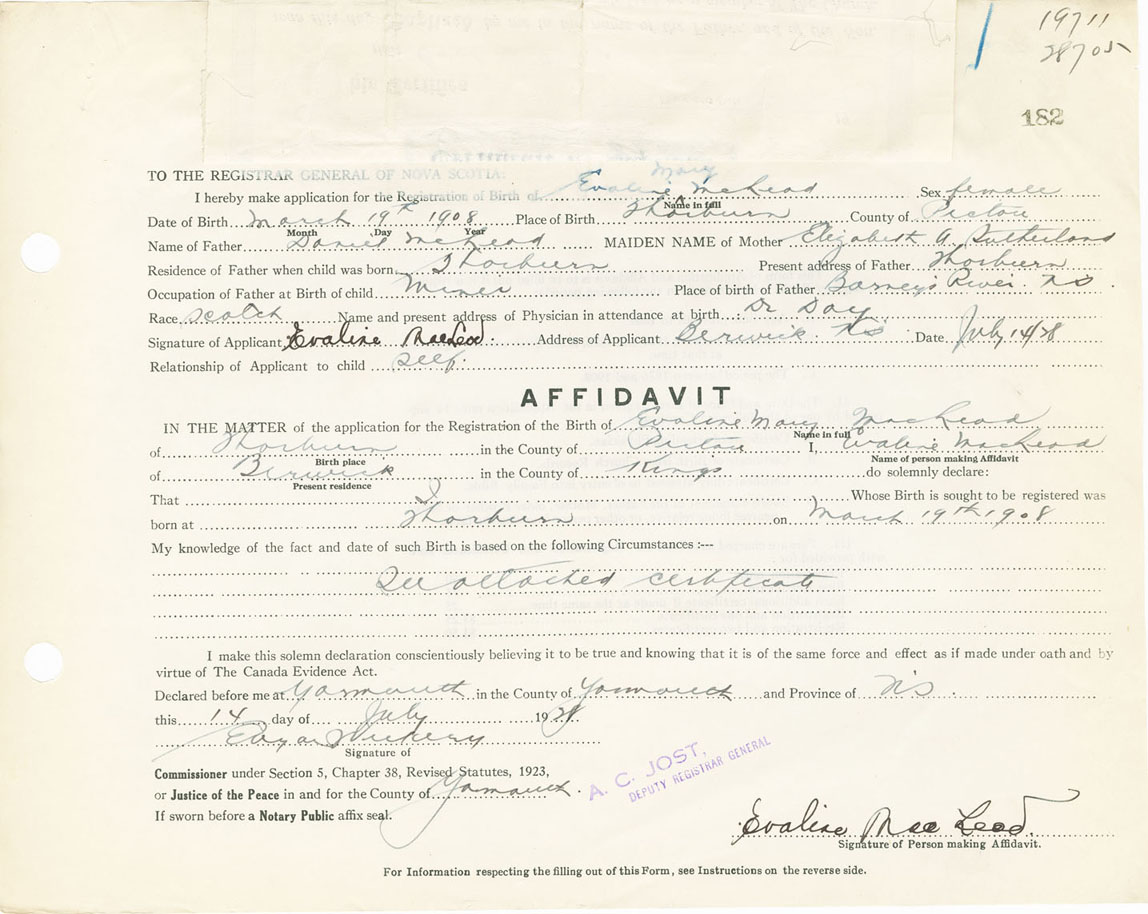 19711
28705
182
TO THE REGISTRAR GENERAL OF NOVA SCOTIA:
Mary
I hereby make application for the Registration of Birth of Evaline McLeod Sex female
Name in full
Date of Birth March 19th 1908 Place of Birth Thorburn County of Pictou
Month Day Year
Name of Father Daniel McLeod MAIDEN NAME of Mother Elizabeth A Sutherland
Residence of Father when child was born Thorburn Present address of Father Thorburn
Occupation of Father at Birth of child Miner Place of birth of Father Barney's River NS
Race Scotch Name and present address of Physician in attendance at birth: Dr Day
Signature of Applicant Evaline MacLeod Address of Applicant Berwick NS Date July 14/28
Relationship of Applicant to child self
AFFIDAVIT
IN THE MATTER of the application for the Registration of the Birth of Evaline Mary MacLeod
Name in full
of Thorburn in the County of Pictou I, Evaline MacLeod
Birth place Name of person making Affidavit
of Berwick in the County of Kings do solemnly declare:
Present residence
That I Whose Birth is sought to be registered was
born at Thorburn on March 19th 1908
My knowledge of the fact and date of such Birth is based on the following Circumstances :---
See attached certificate
I make this solemn declaration conscientiously believing it to be true and knowing that it is of the same force and effect as if made under oath and by
virtue of The Canada Evidence Act.
Declared before me at Yarmouth in the County of Yarmouth and Province of NS
this 14 day of July 1928
Signature of
Commissioner under Section 5, Chapter 38, Revised Statutes, 1923,
or Justice of the Peace in and for the County of Yarmouth.
If sworn before a Notary Public affix seal.
A. C. JOST,
DEPUTY REGISTRAR GENERAL
Evaline MacLeod.
Signature of Person making Affidavit.
For Information respecting the filling out of this Form, see Instructions on the reverse side.